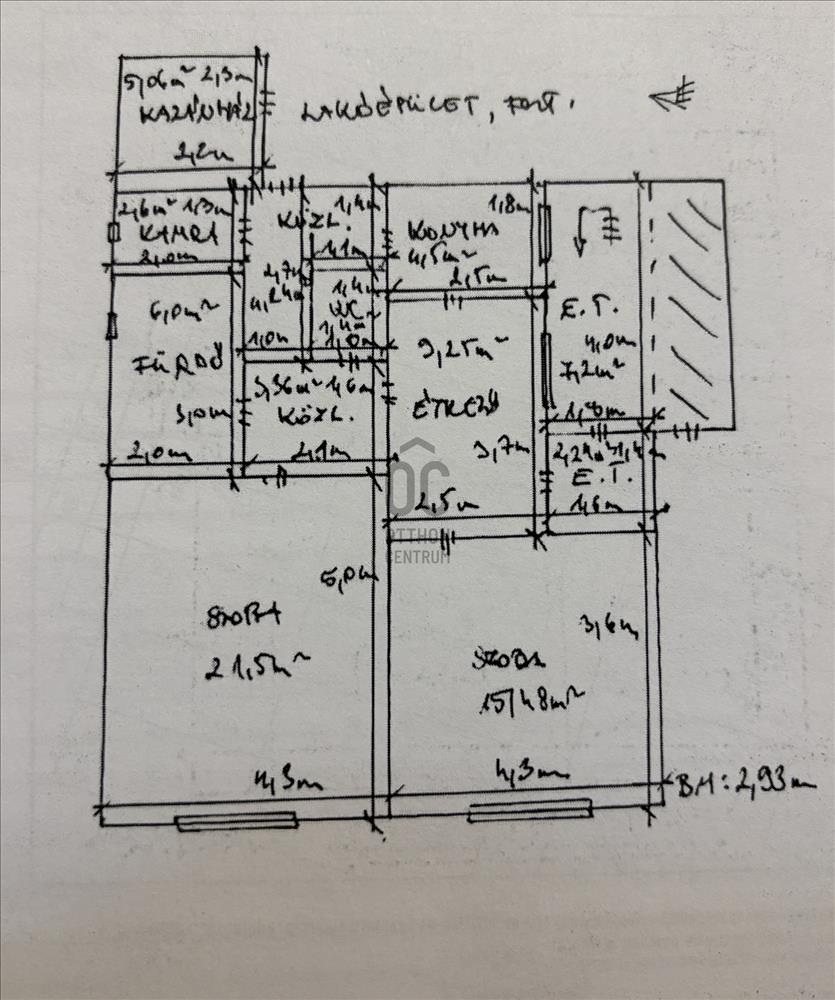 5,06m² 2,3m
KAZÁNHÁZ
2,2m
LAKÓÉPÜLET, FSZT.
2,6m² 1,3m
KAMRA
2,0m
KÖZL.
1,4m
1,1m
2,7m
4,24m
1,0m
1,4m
WC
1,4m²
1,0m
1,8m
KONYHA
4,5m²
2,5m
E.T.
4,0m
7,2m²
1,8m
6,0m²
FÜRDŐ
3,0m
2,0m
3,36m² 1,6m
KÖZL.
2,1m
9,25m²
ÉTKEZŐ
3,7m
2,5m
2,24m² 1,4m
E.T.
1,6m
OC
OTTHON
CENTRUM
5,0m
SZOBA
21,5m²
4,3m
3,6m
SZOBA
15,48m²
4,3m
BM: 2,93m